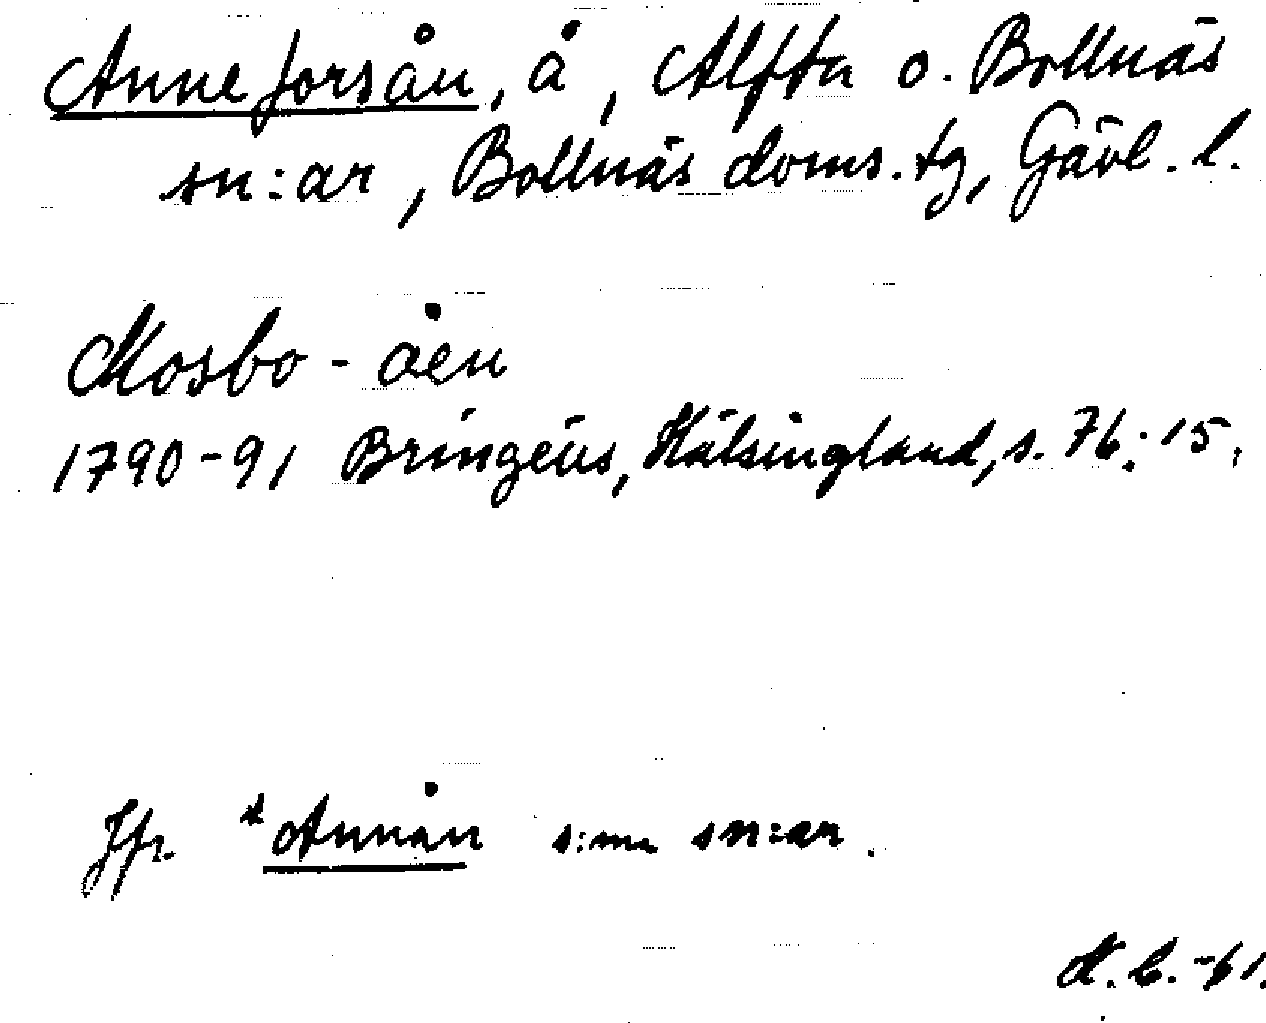 Anneforsån, å, Alfta o. Bollnäs
sn:ar, Bollnäs doms.tg, Gävl. l.
Mosbo-åen
1790-91 Bringéus, Hälsingland, s. 76:15.
Jfr *Annån s:ma sn:ar.
-61.